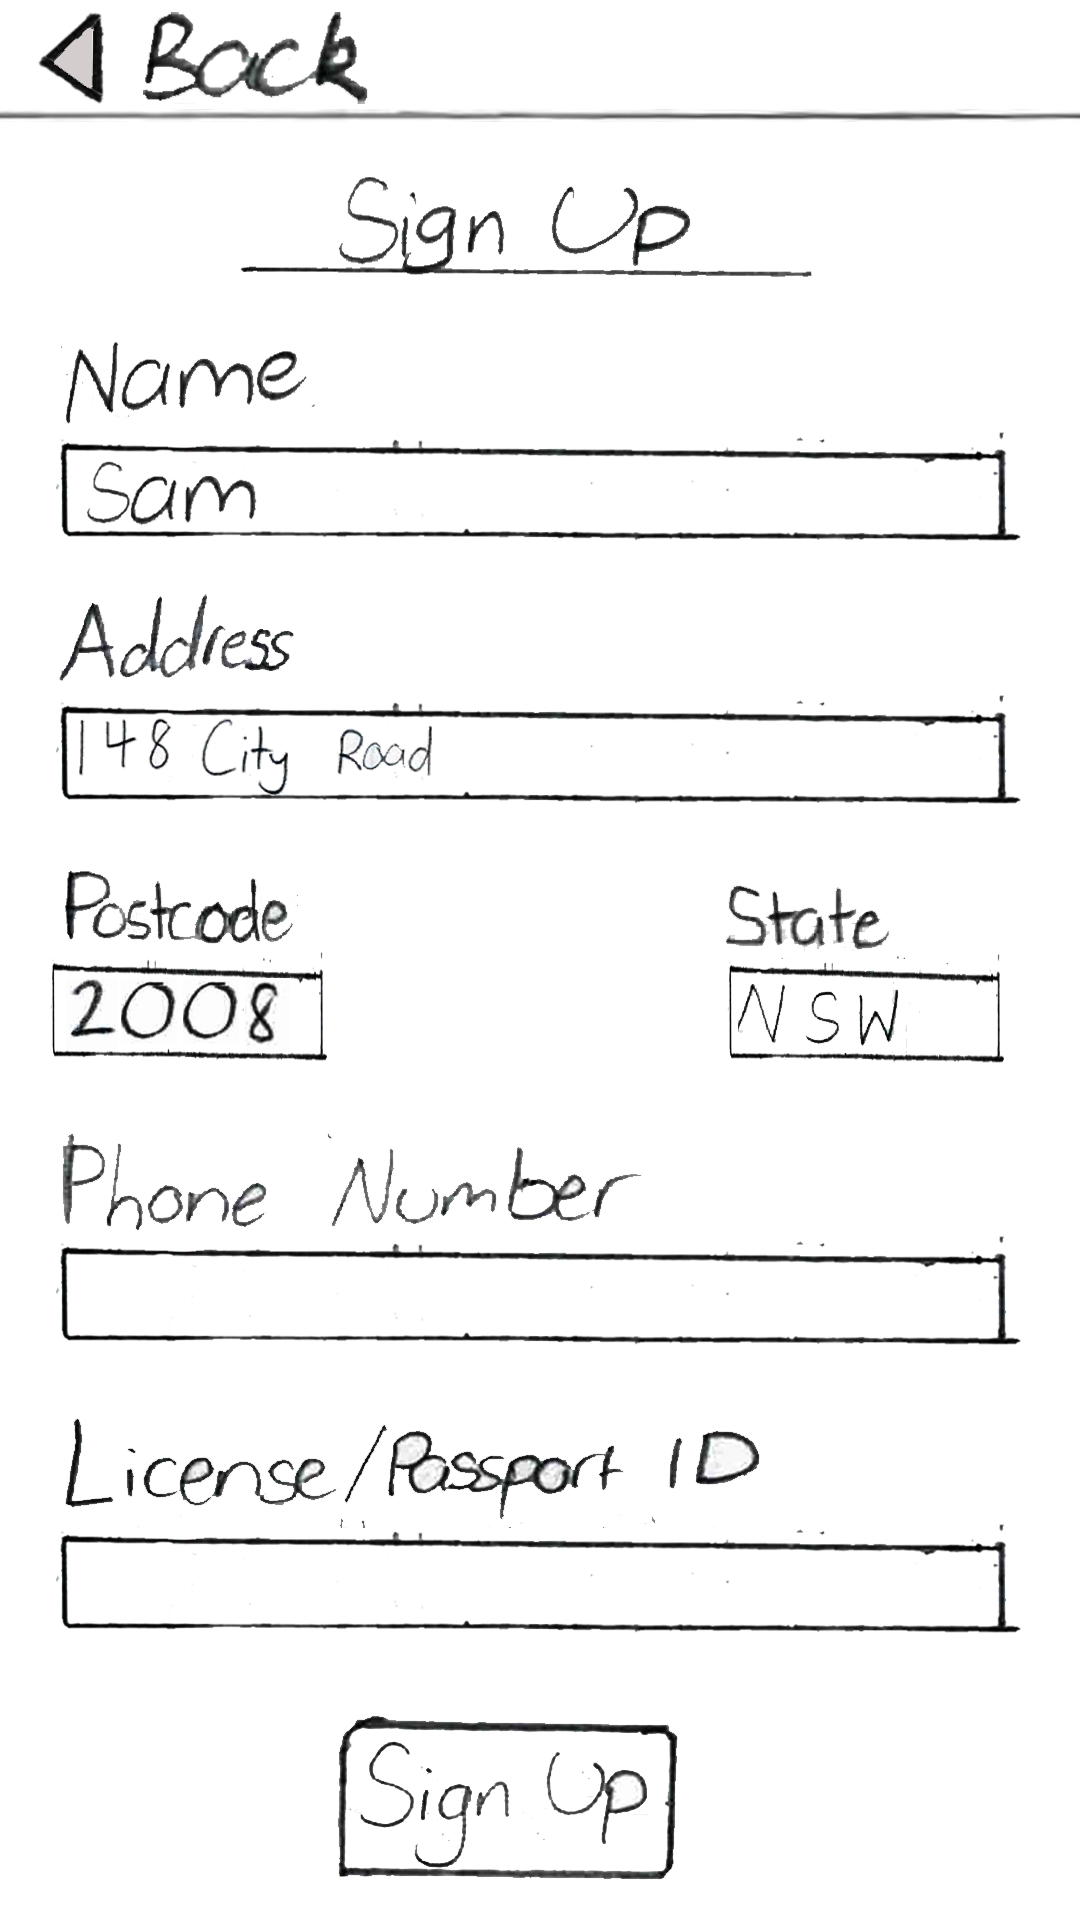 Back
Sign Up
Name
Sam
Address
148 City Road
Postcode State
2008 NSW
Phone Number
License/Passport ID
Sign Up